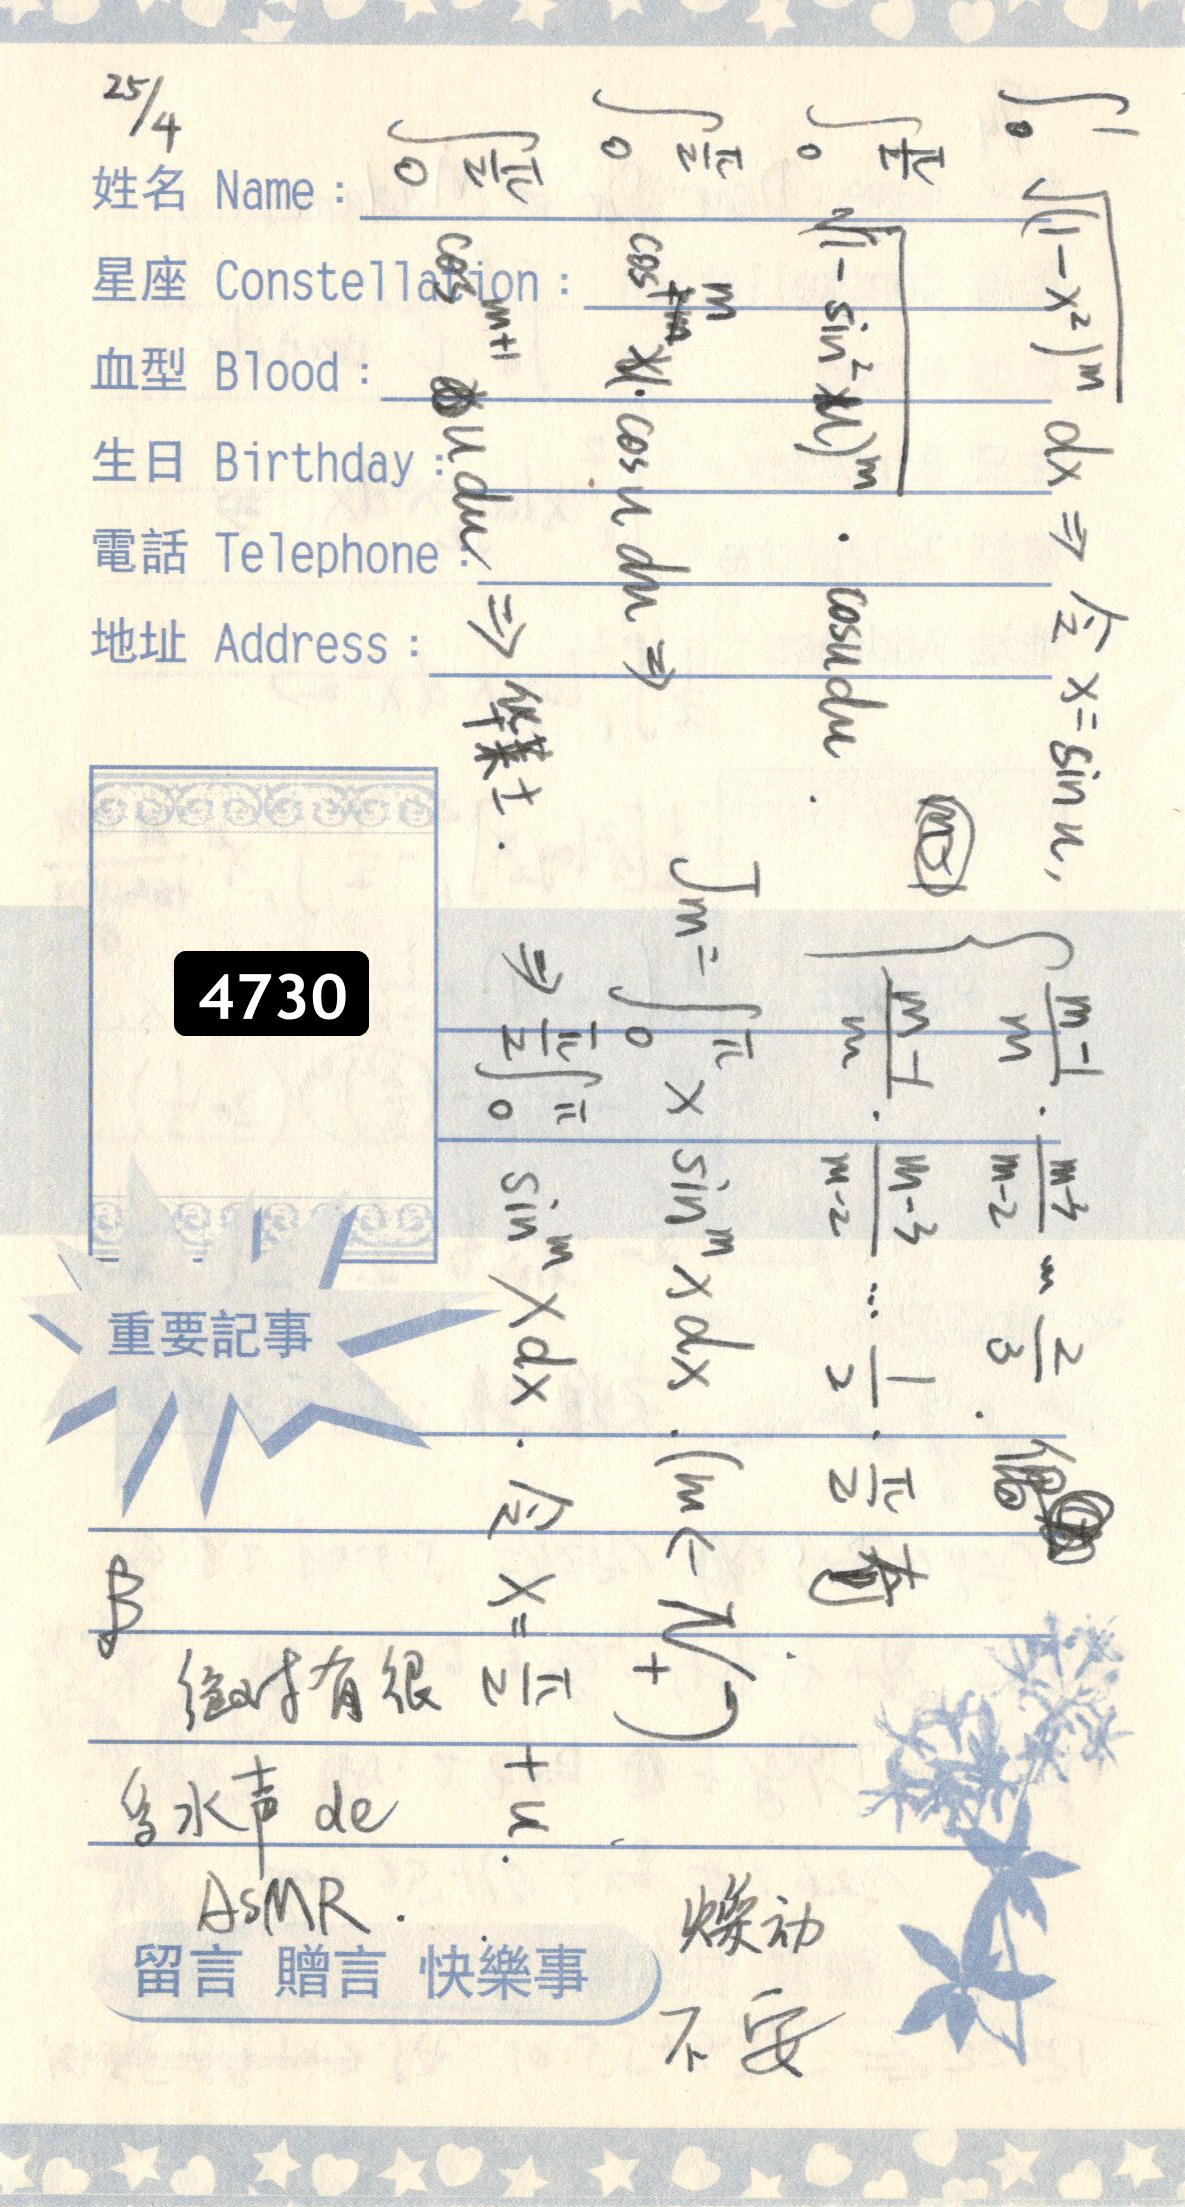 25/4
姓名 Name：
星座 Constellation：
血型 Blood：
生日 Birthday：
電話 Telephone：
地址 Address：
4730
重要記事
∫₀¹ √(1-x²)ᵐ dx ⇒ 令 x = sin u,
∫₀^(π/2) √(1-sin²u)ᵐ · cosu du.
∫₀^(π/2) cosᵐ u · cos u du ⇒
∫₀^(π/2) cosᵐ⁺¹ u du ⇒ 华莱士.
{ (m-1)/m · (m-3)/(m-2) … 2/3 .
(m-1)/m · (m-3)/(m-2) … 1/2 · π/2 奇.
Jm = ∫₀^π x sinᵐ x dx. (m ∈ N₊)
⇒ π/2 ∫₀^π sinᵐ x dx. 令 x = π/2 + u.
B
绝对有很
多水声 de
ASMR.
留言 贈言 快樂事
动
不安